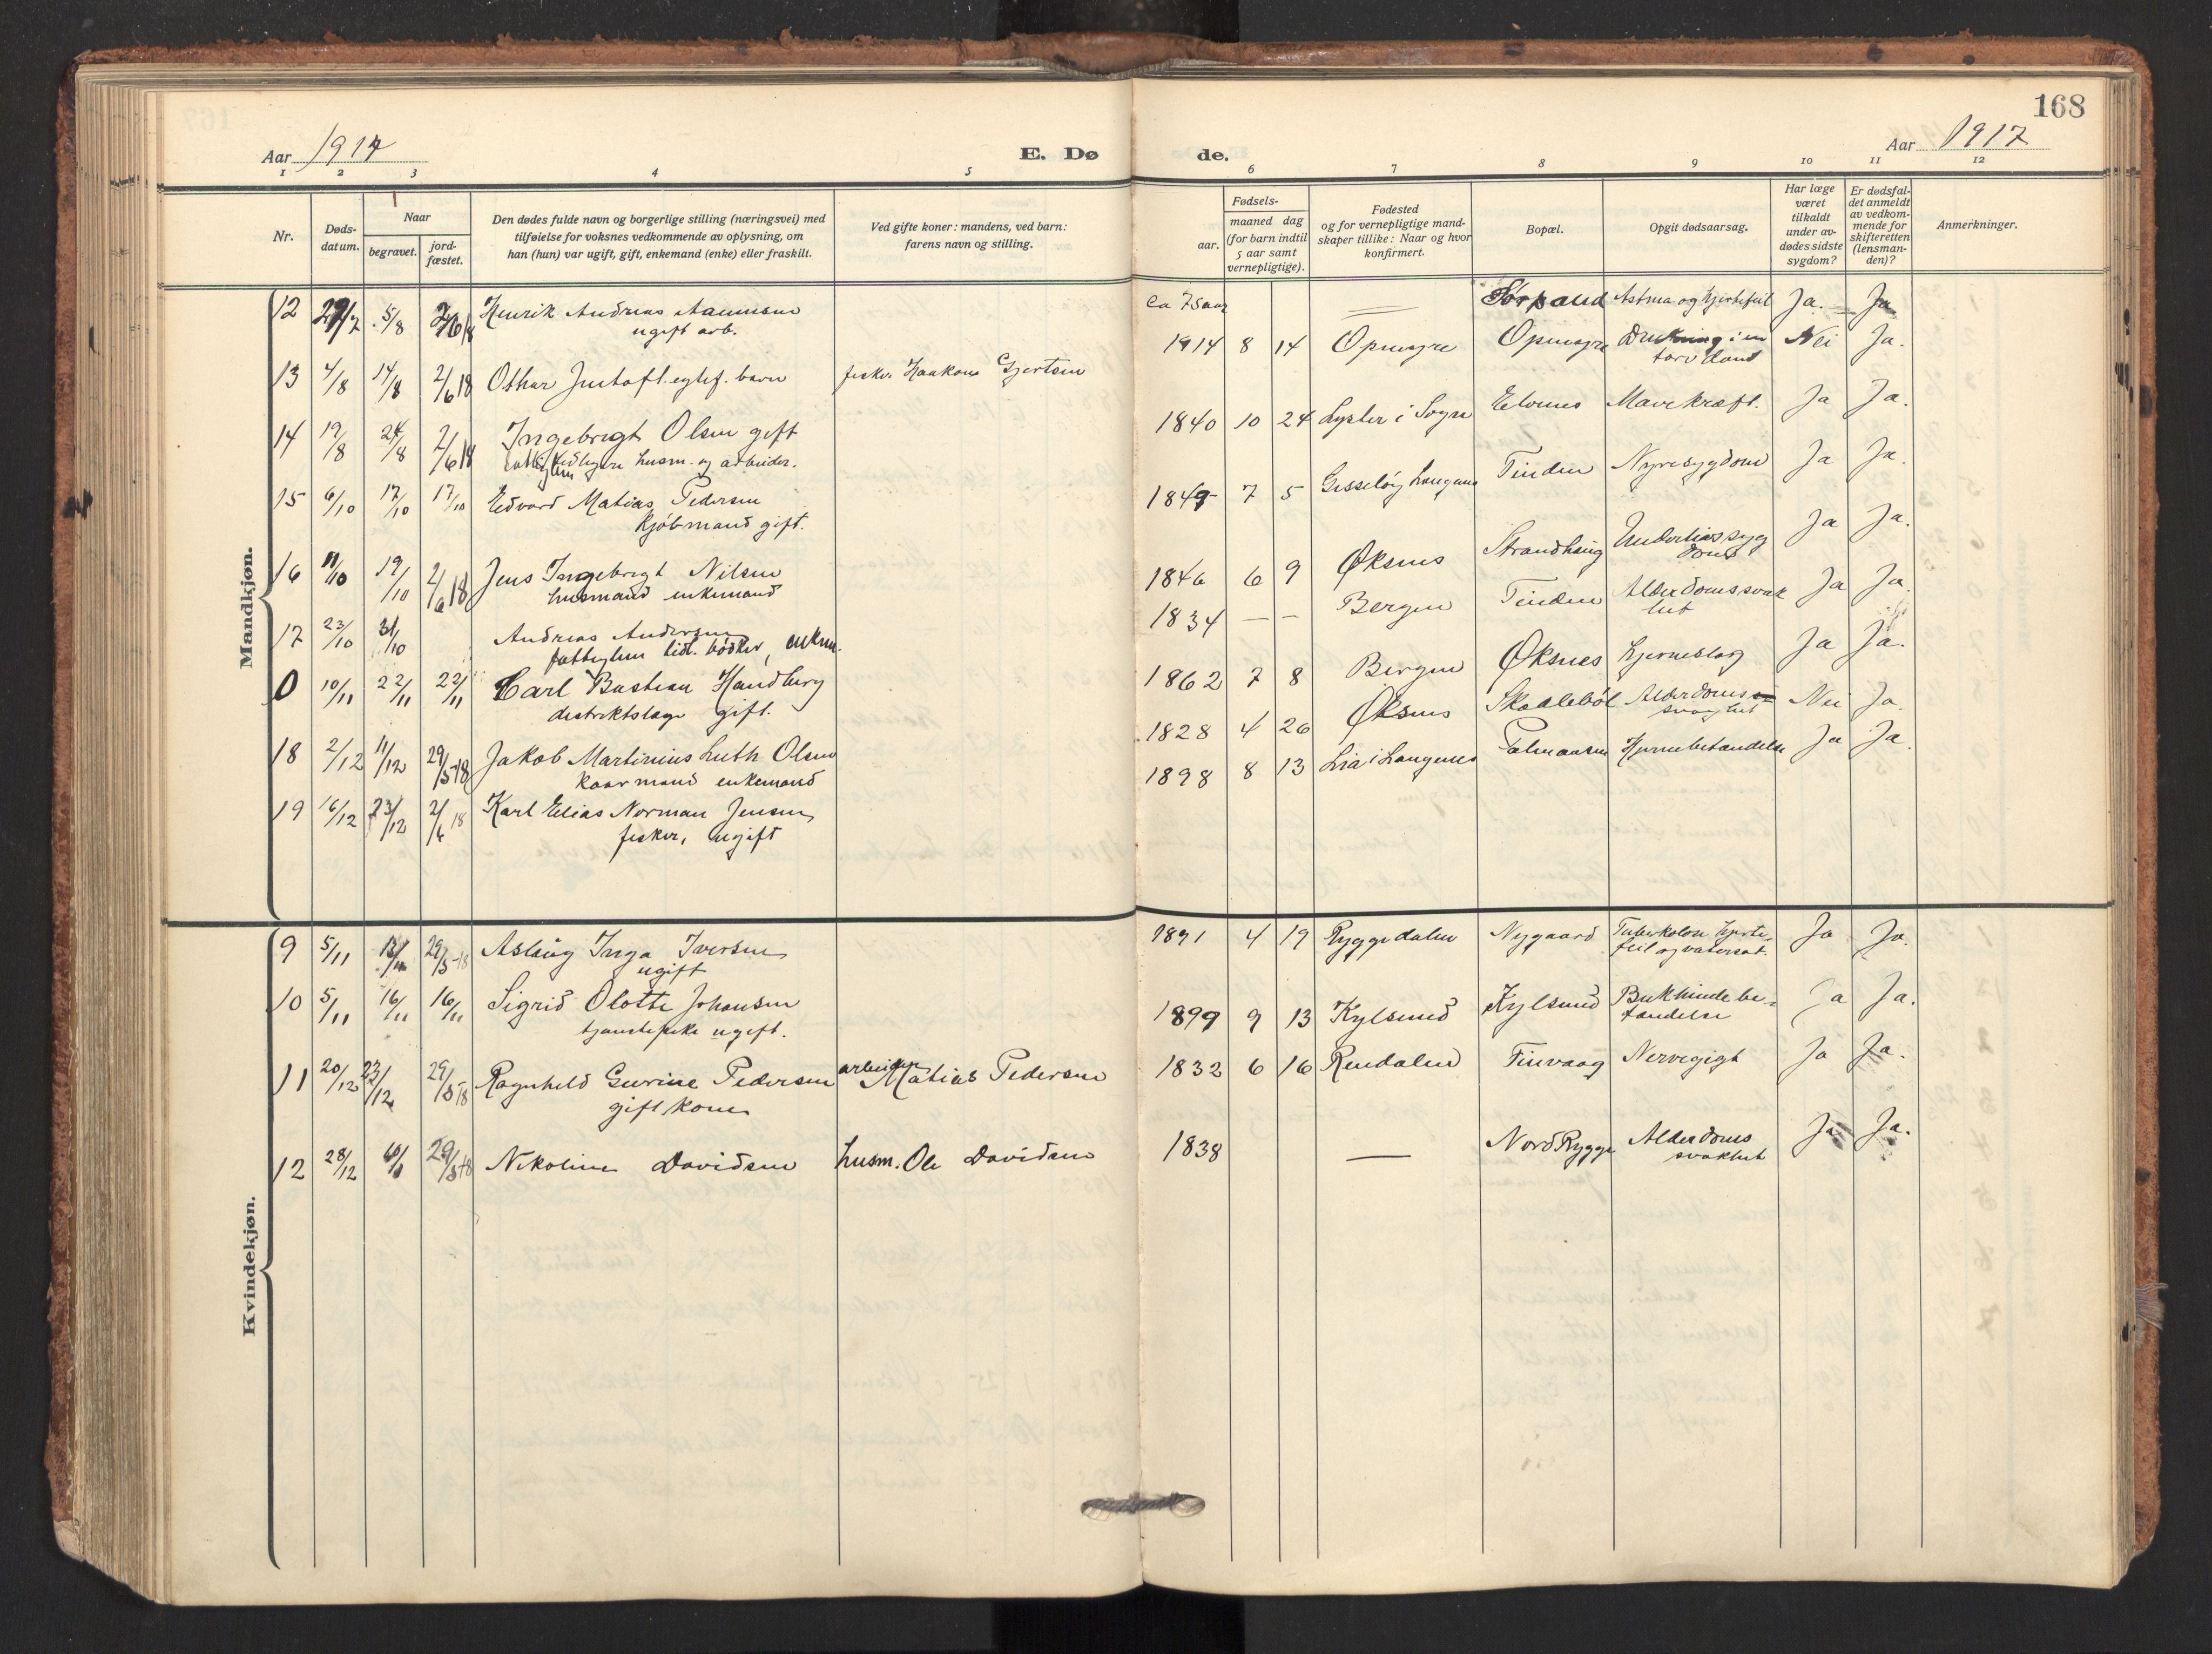 168
Aar 1917
E. Dø
de.
Aar 1917
1 2 3 4 5 6 7 8 9 10 11 12
Nr.
Døds-
datum.
Naar
begravet.
jord-
fæstet.
Den dødes fulde navn og borgerlige stilling (næringsvei) med
tilføielse for voksnes vedkommende av oplysning, om
han (hun) var ugift, gift, enkemand (enke) eller fraskilt.
Ved gifte koner: mandens, ved barn:
farens navn og stilling.
Fødsels-
aar.
maaned dag
(for barn indtil
5 aar samt
vernepligtige).
Fødested
og for vernepligtige mand-
skaper tillike: Naar og hvor
konfirmert.
Bopæl.
Opgit dødsaarsag.
Har læge
været
tilkaldt
under av-
dødes sidste
sygdom?
Er dødsfal-
det anmeldt
av vedkom-
mende for
skifteretten
(lensman-
den)?
Anmerkninger.
Mandkjøn.
12 29/7 5/8 2/6 18 Henrik Andreas ca 75 aar — Astma og hjertefeil Ja. Ja
ugift arb.
13 4/8 14/8 2/6 18 Othar fisker Haakon Gjertsen 1914 8 14 Opmyre Opmyre Drukning i en Nei Ja.
14 19/8 24/8 2/6 18 Ingebrigt Olsen gift 1840 10 24 Lyster i Sogn Elvenes Mavekræft. Ja Ja.
husm. og arbeider.
15 6/10 17/10 17/10 Edvard Matias Pedersen 1849 7 5 Gisseløy Langenes Tinden Nyresygdom Ja Ja.
Kjøbmand gift.
16 11/10 19/10 2/6 18 Jens Ingebrigt Nilsen 1846 6 9 Øksnes Strandhaug Underlivssyg Ja Ja.
dom
husmand enkemand
17 23/10 31/10 Andreas Andersen 1834 — — Bergen Tinden Alderdomssvak Ja Ja
het
fattiglem tidl. bødker, enkem.
0 10/11 22/11 22/11 Carl Bastian Handberg 1862 7 8 Bergen Øksnes Hjerneslag Ja Ja.
distriktslæge gift.
18 2/12 11/12 29/5-18 Jakob Martinius Luth Olsen 1828 4 26 Øksnes Skaalebøl Alderdoms Nei Ja.
svaghet
kaarmand enkemand
19 16/12 23/12 2/6 18 Karl Elias Norman Jensen 1898 8 13 Lia i Langenes Hjernebetændelse Ja Ja.
fisker, ugift
Kvindekjøn.
9 5/11 29/5-18 Aslaug Inga Iversen 1891 4 19 Ryggedalen Nygaard Tuberkolose hjerte- Ja Ja.
feil og vatersot.
ugift
10 5/11 16/11 16/11 Sigrid Olotte Johansen 1899 9 13 Kylsund Kylsund Bukhindebe- Ja Ja.
tændelse
tjenstepike ugift.
11 20/12 23/12 29/5-18 Ragnhild Gurine Pedersen arbeider Matias Pedersen 1832 6 16 Rendalen Finvaag Nervegigt Ja Ja.
gift kone
12 28/12 29/5-18 Nikoline Davidsen husm. Ole Davidsen 1838 — Nord Rygge Alderdoms Ja Ja.
svakhet